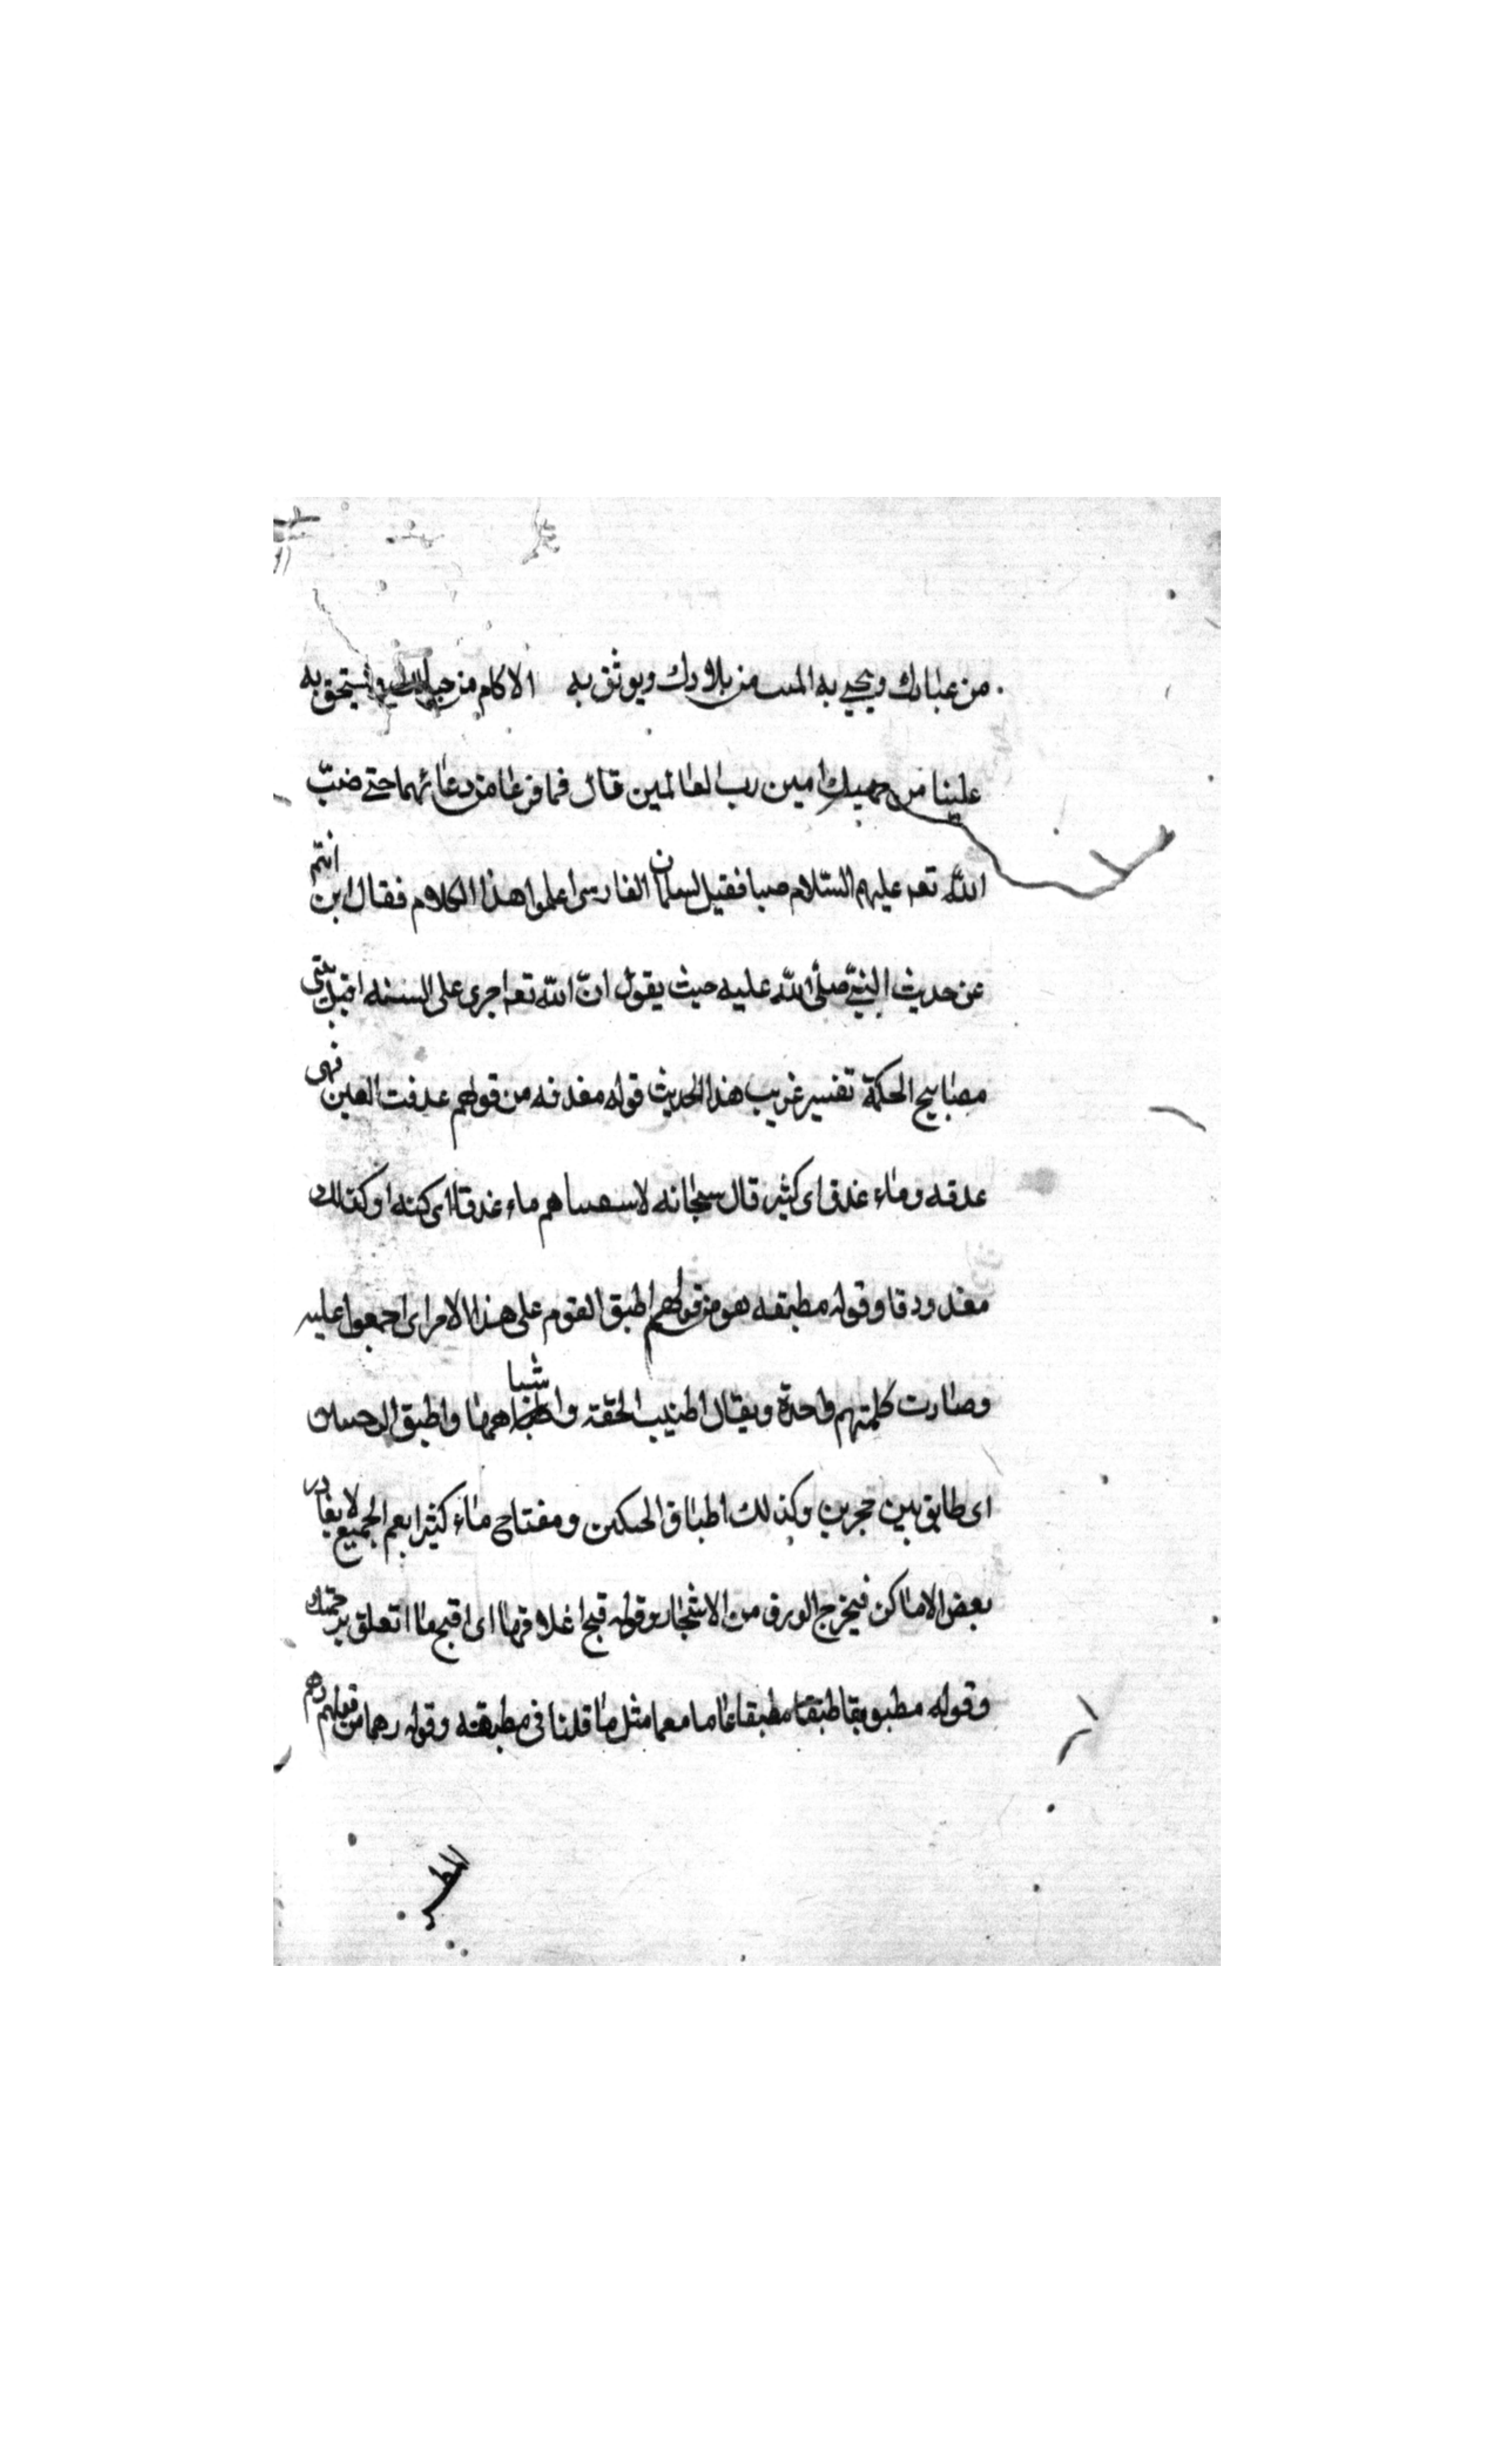 من عبادك ويحيى به الميت من بلادك ويونق به الاكام من ويستحق به
علينا من جميلك امين رب العالمين قال فما فرغا من دعائهما حتى صبّ
الله تعه عليهم السّلام صبا فقيل لسلمان الفارسى اعلموا هذا الكلام فقال اين انتم
عن حديث النبيّ صلّى الله عليه حيث يقول انّ الله تعه اجرى على السنه اهل بيتى
مصابيح الحكمة تفسير غريب هذا الحديث قوله مغدفه من قولهم عدفت العين فهى
عدقه وماء غدق اى كثير قال سبحانه لاسقيناهم ماء غدقا اى كثيرا وكذلك
مغدودقا وقوله مطبقه هو من قولهم اطبق القوم على هذا الامر اى اجمعوا عليه
وصارت كلمتهم واحدة ويقال اطبقت الحقة شيا واطبق الرحيين
اى طابق بين حجرين وكذلك اطباق الحنكين ومفتاح ماء كثيرا يعم الجميع لا يغادر
بعض الاماكن فيخرج الورق من الاشجار وقوله اغلاقها اى اتعلق برحمتك
وقوله مطبوبقا طبقا مطبقا عاما معما مثل ما قلنا فى مطبقه وقوله رهما من قولهم رهم
المطر